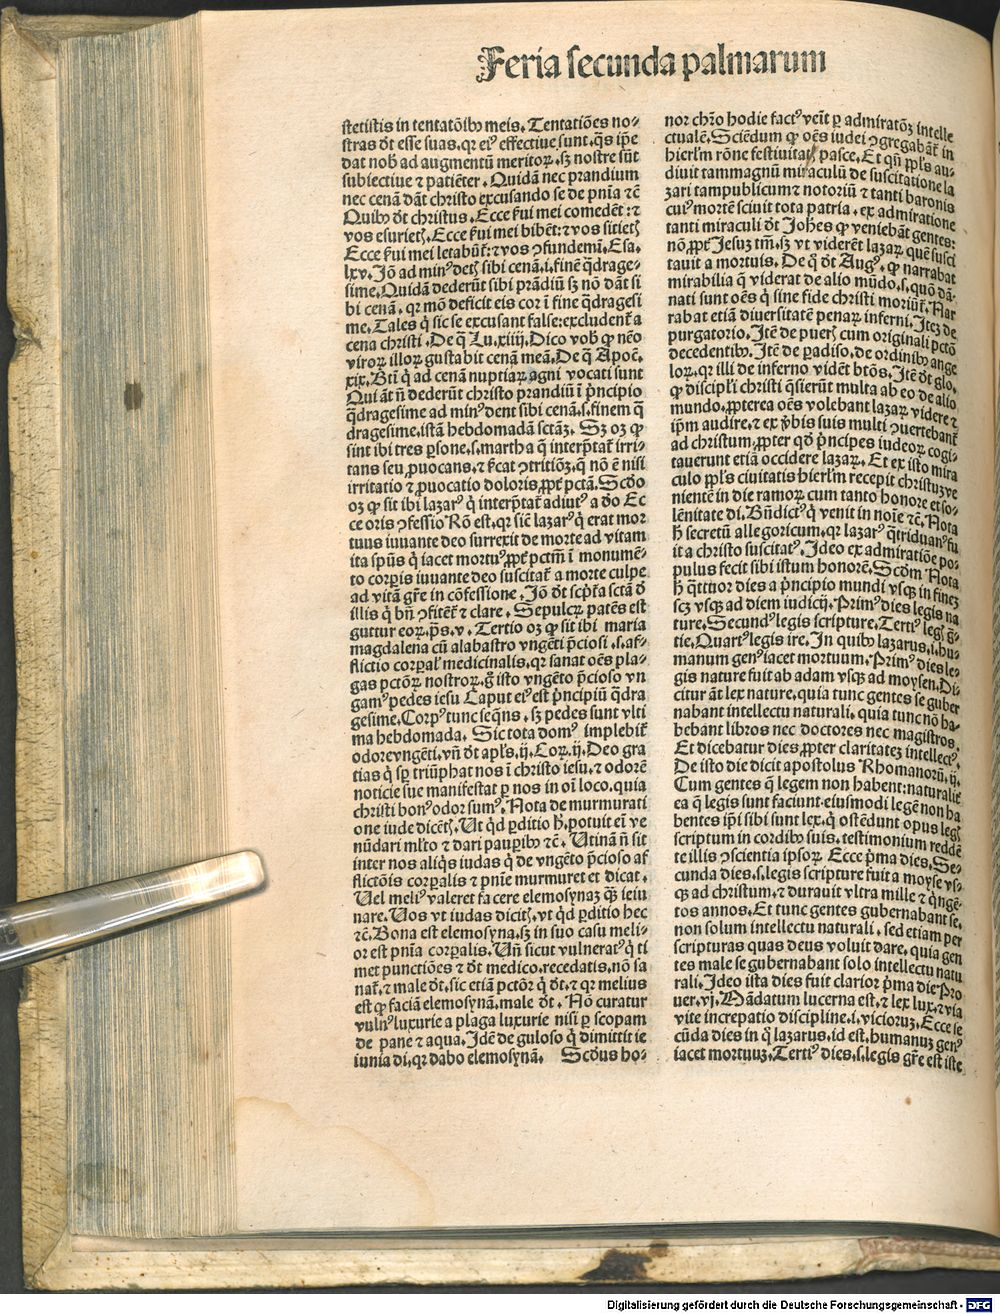 Feria secunda palmarum
stetistis in tentatōibꝫ meis. Tentatiōes no⸗
stras dt̄ esse suas. qꝛ eiꝰ effectiue sunt. qꝫs ip̄e
dat nob̄ ad augmentū meritoꝝ. sꝫ nostre sūt
subiectiue ⁊ patiēter. Quidā nec prandium
nec cenā dāt christo excusando se de pn̄ia ⁊c̄
Quibꝫ dt̄ christus. Ecce ẜui mei comedēt : ⁊
vos esurietꝭ. Ecce ẜui mei bibēt: ⁊ vos sitietꝭ
Ecce ẜui mei letabūt̄: ⁊ vos ꝯfundemī. Esa.
lxv. Iō ad minꝰ detꝭ sibi cenā. i. finē q̄drage⸗
sime. Quidā dederūt sibi prādiū sꝫ nō dāt si
bi cenā. qꝛ mō deficit eis cor ī fine q̄dragesi
me. Tales q̇ sic se excusant false: excludent̄ a
cena christi. De q̇ Lu. xiiij. Dico vob̄ ꝙ nēo
viroꝝ illoꝝ gustabit cenā meā. De q̇ Apoc̄.
xix. Bt̄i q̇ ad cenā nuptiaꝝ agni vocati sunt
Qui āt n̄ dederūt christo prandiū ī pⁱncipio
q̄dragesime ad minꝰ dent sibi cenā. s. finem q̄
dragesime. istā hebdomadā sctāꝫ. Sꝫ oꝫ ꝙ
sint ibi tres ꝑsone. s. martha q̄ interp̄tat̄ irri⸗
tans seu ꝓuocans. ⁊ ẜcat ꝯtritiōꝫ. q̄ nō ē nisi
irritatio ⁊ ꝓuocatio doloris ꝓpt̄ pctā. Scd̄o
oꝫ ꝙ sit ibi lazarꝰ q̇ interp̄tat̄ adiutꝰ a dō Ec
ce oris ꝯfessio Rō est. qꝛ sic̄ lazarꝰ q̇ erat mor
tuus iuuante deo surrexit de morte ad vitam
ita spūs q̇ iacet mortuꝰ ꝓpt̄ pctm̄ ī monumē⸗
to corꝑis iuuante deo suscitat̄ a morte culpe
ad vitā gr̄e in cōfessione. Iō dt̄ scp̄ta sctā ď
illis q̇ bn̄ ꝯfitēt̄ ⁊ clare. Sepulcꝝ patēs est
guttur eoꝝ. ps̄. v. Tertio oꝫ ꝙ sit ibi maria
magdalena cū alabastro vngēti p̄ciosi .s. af⸗
flictio corꝑal' medicinalis. qꝛ sanat oēs pla⸗
gas pctōꝝ nostroꝝ. g̊ isto vngēto p̄cioso vn
gamꝰ pedes iesu Caput eiꝰ est pⁱncipiū q̄dra
gesime. Corpꝰ tunc seq̄ns. sꝫ pedes sunt vlti
ma hebdomada. Sic tota domꝰ implebit̄
odore vngēti. vn̄ dt̄ apl's. ij. Coꝝ. ij. Deo gra
tias q̇ sꝑ triūphat nos ī christo iesu. ⁊ odorē
noticie sue manifestat ꝑ nos in oī loco. quia
christi bonꝰ odor sumꝰ. Nota de murmurati
one iude dicētꝭ. Ut qd̄ ꝑditio h̄. potuit eī ve
nūdari ml'to ⁊ dari pauꝑibꝫ ⁊c̄. Utinā n̄ sit
inter nos aliq̇s iudas q̇ de vngēto p̄cioso af
flictōis corꝑalis ⁊ pn̄ie murmuret et dicat.
Uel meliꝰ valeret facere elemosynaꝫ qꝫ̄ ieiu
nare. Uos vt iudas dicitꝭ. vt qd̄ ꝑditio hec
⁊c̄. Bona est elemosyna. sꝫ in suo casu meli⸗
or est pn̄ia corꝑalis. Un̄ sicut vulneratꝰ q̇ ti
met punctiōes ⁊ dt̄ medico. recedatis. nō sa
nat̄. ⁊ male dt̄. sic etiā pctōr q̇ dt̄. ⁊ qꝛ melius
est ꝙ faciā elemosynā. male dt̄. Nō curatur
vulnꝰ luxurie a plaga luxurie nisi ꝑ scopam
de pane ⁊ aqua. Idē de guloso q̇ dimittit ie
iunia di. qꝛ dabo elemosynā. Scd̄us ho⸗
nor chr̄o hodie factꝰ veīt ꝑ admiratōꝫ intelle
ctualē. Sciēdum ꝙ oēs iudei ꝯgregabāt̄ in
hierl'm rōne festiuitatꝭ pasce. Et qn̄ ppl's au⸗
diuit tammagnū miraculū de suscitatione la
zari tampublicum ⁊ notoriū ⁊ tanti baronis
cuiꝰ mortē sciuit tota patria. ex admiratione
tanti miraculi dt̄ Joh̄es ꝙ veniebāt gentes:
nō ꝓpt̄ Jesuꝫ tm̄. sꝫ vt viderēt lazaꝝ quē susci
tauit a mortuis. De q̇ dt̄ Augꝰ. ꝙ narrabat
mirabilia q̄ viderat de alio mūdo. s. quō dā⸗
nati sunt oēs q̇ sine fide christi moriūt̄. Nar
rabat etiā diuersitatē penaꝝ inferni. Iteꝫ de
purgatorio. Itē de puerꝭ cum originali pctō
decedentibꝫ. Itē de padiso. de ordinibꝫ ange
loꝝ. qꝛ illi de inferno vidēt btōs. Itē dt̄ glo.
ꝙ discipl'i christi q̄sierūt multa ab eo de alio
mundo. ꝓpterea oēs volebant lazaꝝ videre ⁊
ip̄m audire. ⁊ ex ꝟbis suis multi ꝯuertebant̄
ad christum. ꝓpter qd̄ pⁱncipes iudeoꝝ cogi
tauerunt etiā occidere lazaꝝ. Et ex isto mira
culo ppl's ciuitatis hierl'm recepit christuꝫ ve
nientē in die ramoꝝ cum tanto honore et so⸗
lēnitate di. Bn̄dictꝰ q̇ venit in noīe ⁊c̄. Nota
h̄ secretū allegoricum. qꝛ lazarꝰ q̄triduanꝰ fu
it a christo suscitatꝰ. Ideo ex admiratiōe po⸗
pulus fecit sibi istum honorē. Scd̄m Nota
h̄ q̄ttuor dies a pⁱncipio mundi vsqꝫ in fineꝫ
scꝫ vsqꝫ ad diem iudicij. Primꝰ dies legis na
ture. Secundꝰ legis scripture. Tertiꝰ legꝭ gr̄⸗
tie. Quartꝰ legis ire. In quibꝫ lazarus. i. hu⸗
manum genꝰ iacet mortuum. Primꝰ dies le⸗
gis nature fuit ab adam vsqꝫ ad moysen. Di⸗
citur āt lex nature. quia tunc gentes se guber
nabant intellectu naturali. quia tunc nō ha⸗
bebant libros nec doctores nec magistros.
Et dicebatur dies ꝓpter claritateꝫ intellectꝰ.
De isto die dicit apostolus Rhomanorū. ij.
Cum gentes q̄ legem non habent: naturalit̄
ea q̄ legis sunt faciunt. eiusmodi legē non ha
bentes ip̄i sibi sunt lex. q̇ ostēdunt opus legꝭ
scriptum in cordibꝫ suis. testimonium reddē
te illis ꝯscientia ipsoꝝ. Ecce pⁱma dies. Se⸗
cunda dies. s. legis scripture fuit a moyse vs⸗
qꝫ ad christum. ⁊ durauit vltra mille ⁊ q̇ngē⸗
tos annos. Et tunc gentes gubernabant se.
non solum intellectu naturali. sed etiam per
scripturas quas deus voluit dare. quia gen
tes male se gubernabant solo intellectu natu
rali. Ideo ista dies fuit clarior pⁱma die. Pro
uer. vj. Mādatum lucerna est. ⁊ lex lux. ⁊ via
vite increpatio discipline. i. vicioruꝫ. Ecce se
cūda dies in q̇ lazarus. id est. humanuꝫ genꝰ
iacet mortuuꝫ. Tertiꝰ dies. s. legis gr̄e est iste
Digitalisierung gefördert durch die Deutsche Forschungsgemeinschaft - DFG